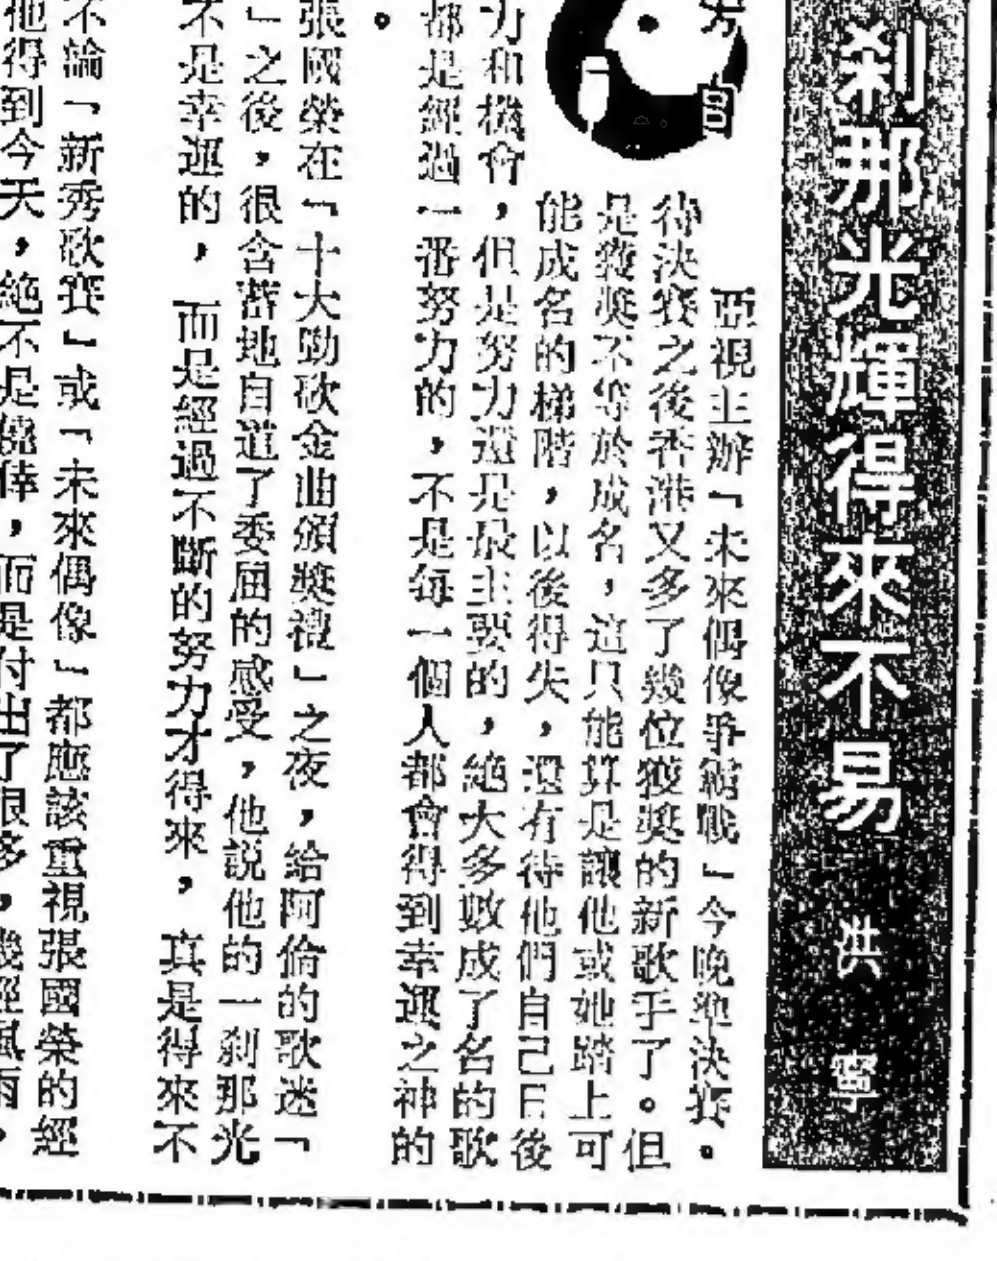 刹那光輝得來不易
洪寧
亞視主辦「未來偶像爭霸戰」今晚準決賽。
待決賽之後香港又多了幾位獲獎的新歌手了。但
是獲獎不等於成名，這只能算是讓他或她踏上可
能成名的梯階，以後得失，還有待他們自己日後
力和機會，但是努力還是最主要的，絕大多數成了名的歌
都是經過一番努力的，不是每一個人都會得到幸運之神的
。
張國榮在「十大勁歌金曲頒獎禮」之夜，給阿倫的歌迷「
」之後，很含蓄地自道了委屈的感受，他説他的一刹那光
不是幸運的，而是經過不斷的努力才得來，真是得來不
不論「新秀歌賽」或「未來偶像」都應該重視張國榮的經
他得到今天，絕不是僥倖，而是付出了很多，幾經風雨，